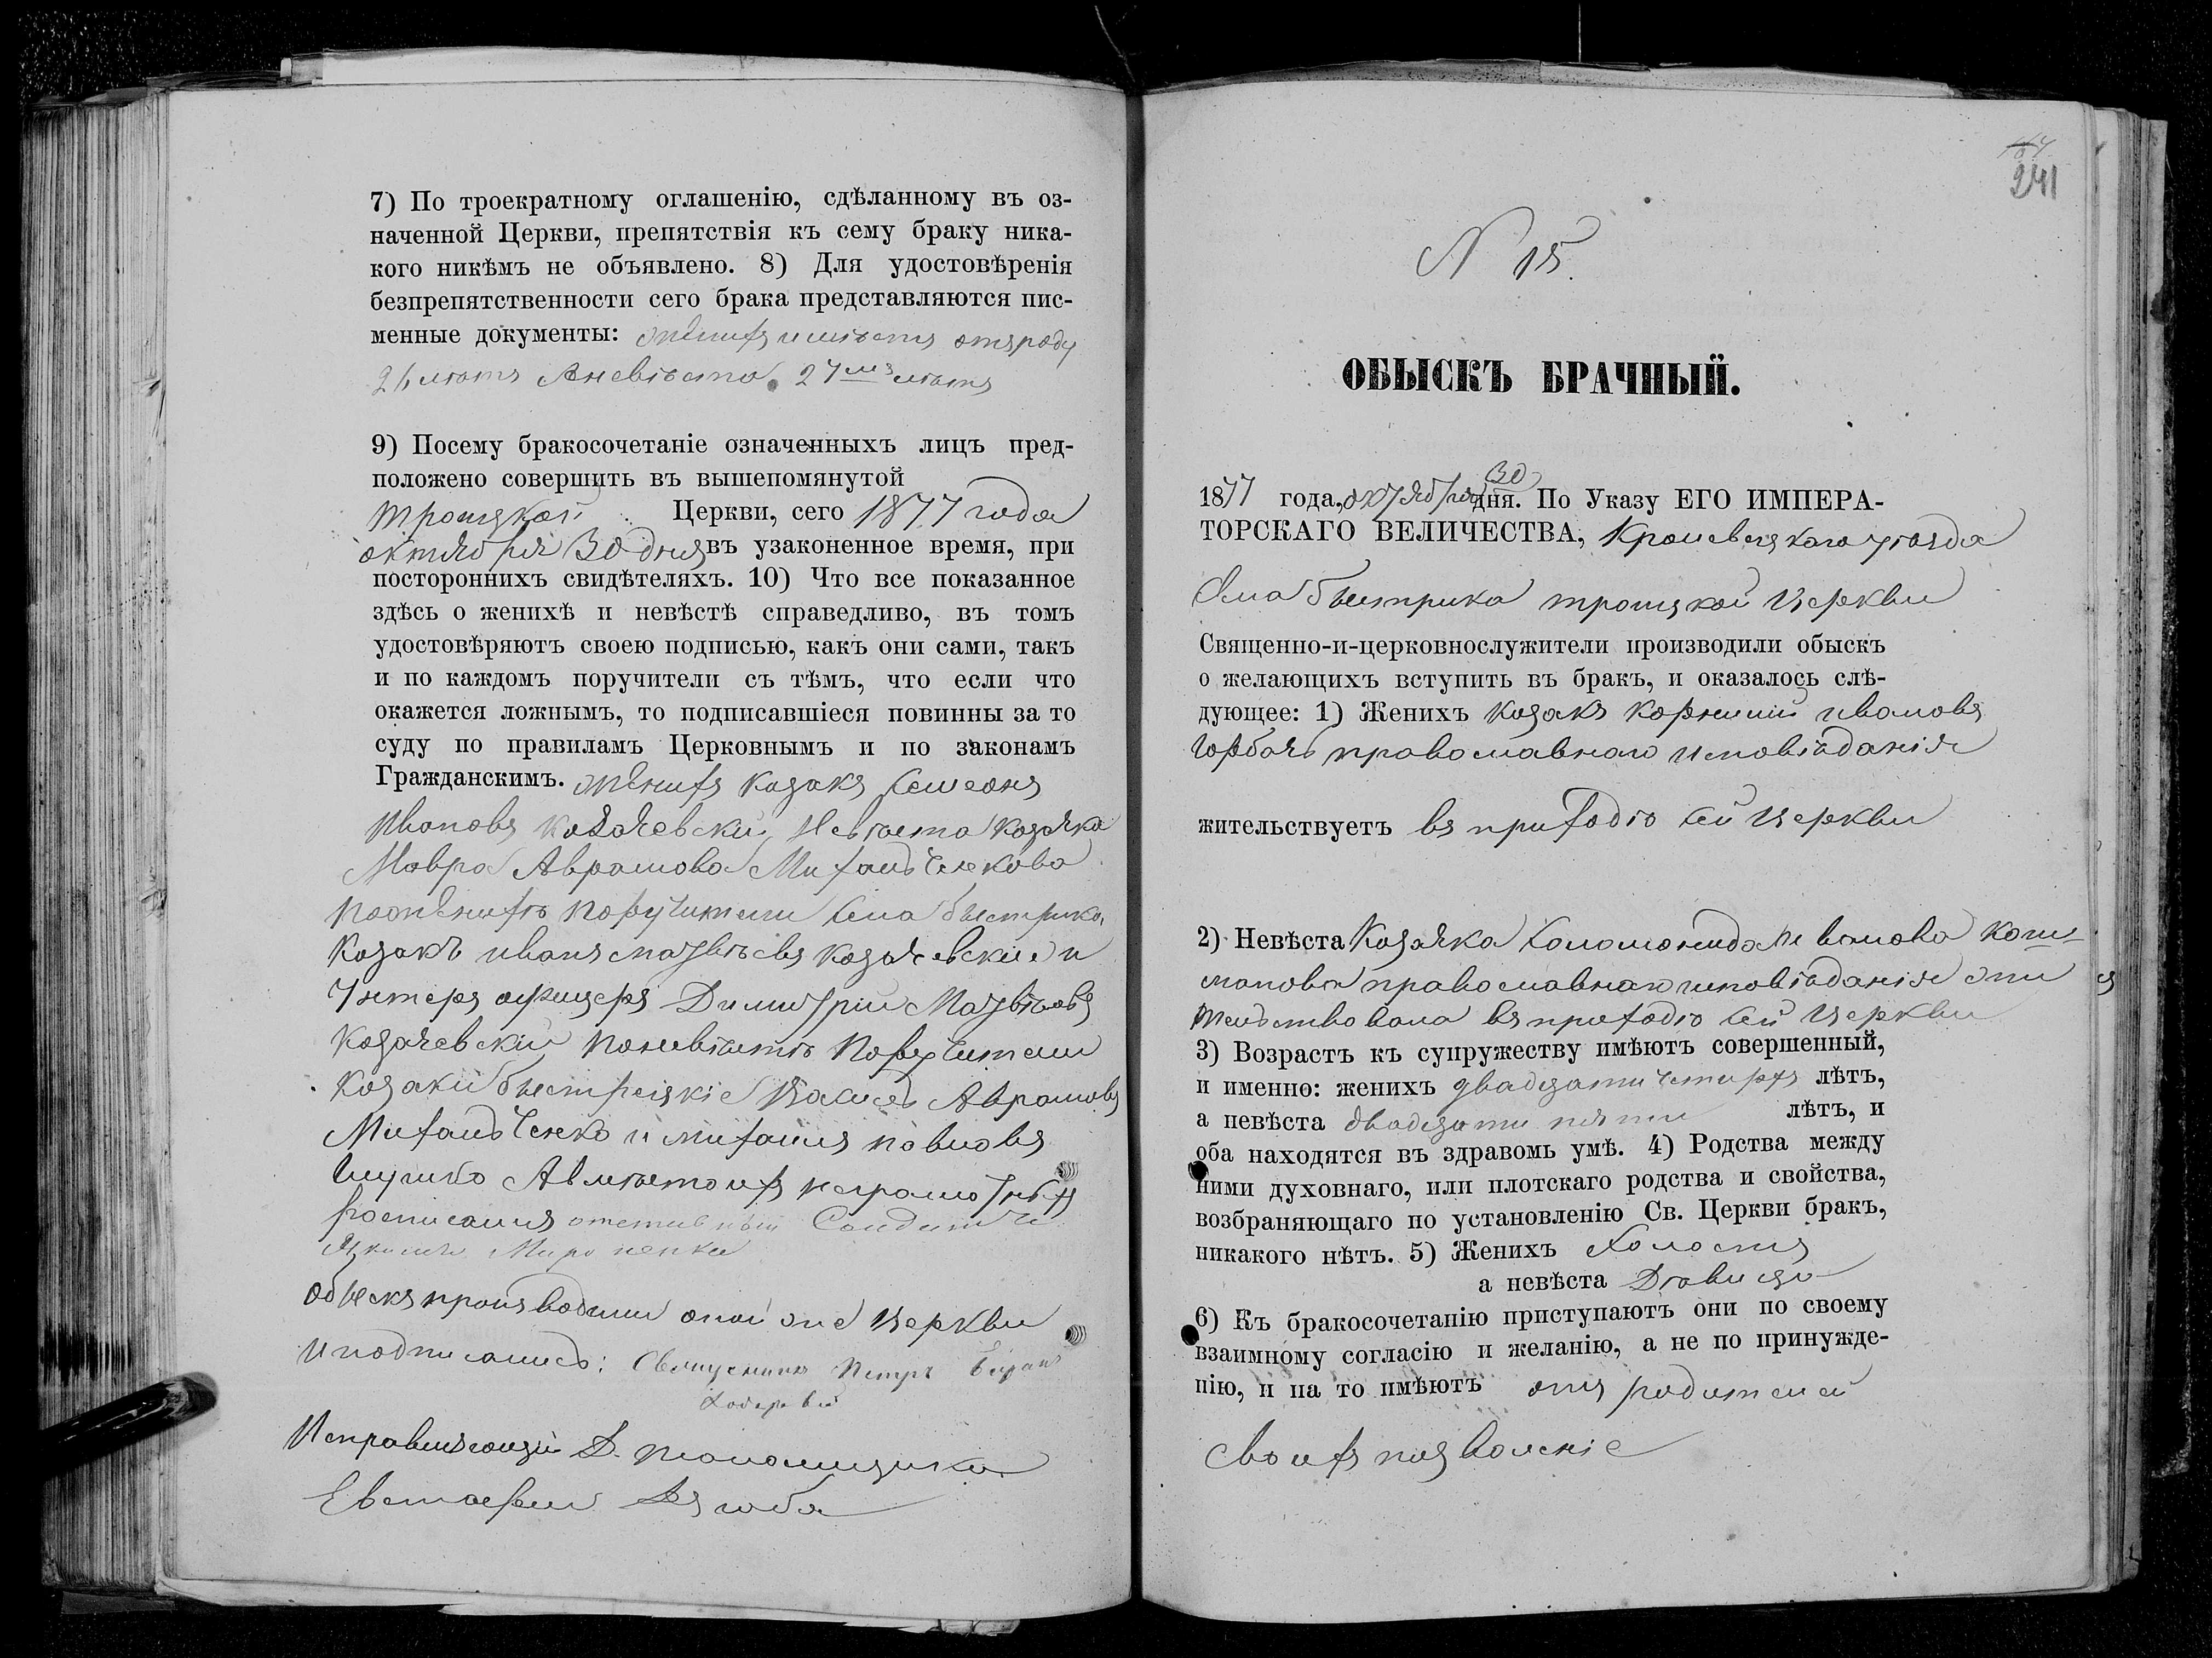 7) По троекратному оглашенію, сдѣланному въ оз-
наченной Церкви, препятствія къ сему браку ника-
кого никѣмъ не объявлено. 8) Для удостовѣренія
безпрепятственности сего брака представляются пис-
менные документы: женихъ имѣетъ отъ роду
лѣтъ Аневѣста лѣтъ
9) Посему бракосочетаніе означенныхъ лицъ пред-
положено совершить въ вышепомянутой
троицкой Церкви, сего 1877 года
октября 30 дня въ узаконенное время, при
постороннихъ свидѣтеляхъ. 10) Что все показанное
здѣсь о женихѣ и невѣстѣ справедливо, въ томъ
удостовѣряютъ своею подписью, какъ они сами, такъ
и по каждомъ поручители съ тѣмъ, что если что
окажется ложнымъ, то подписавшіеся повинны за то
суду по правиламъ Церковнымъ и по законамъ
Гражданскимъ. женихъ Козакъ Семеонъ
Ивановъ Козачевскій, Невѣста Козачка
Мавра Аврамова Михальченкова
по женихѣ поручители села быстрика,
Козакъ иванъ матвѣевъ Козачевскій и
Унтеръ офицеръ Димитрій Матвѣевъ
Козачевскій по невѣстѣ Поручители
Козаки быстрецкіе Аврамовъ
Михальченко и михаилъ павловъ
А вместо ихъ неграмотныхъ
росписался отставный
Обыскъ производили оной же Церкви
и подписались: Священникъ Петръ
Исправляющій Д. пономарщика
Евстафій Дзюба
241
N 15.
ОБЫСКЪ БРАЧНЫЙ.
1877 года, октября 30 дня. По Указу ЕГО ИМПЕРА-
ТОРСКАГО ВЕЛИЧЕСТВА, Кролевецкаго уѣзда
Села быстрика троицкой Церкви
Священно-и-церковнослужители производили обыскъ
о желающихъ вступить въ бракъ, и оказалось слѣ-
дующее: 1) Женихъ козакъ корнилій ивановъ
горбачь православнаго исповѣданія
жительствуетъ въ приходѣ сей Церкви
2) Невѣста Козачка Соломонида Иванова
православнаго исповѣданія жи
тельствовала въ приходѣ сей Церкви
3) Возрастъ къ супружеству имѣютъ совершенный,
и именно: женихъ двадцати четырхъ лѣтъ,
а невѣста двадцати пяти лѣтъ, и
оба находятся въ здравомъ умѣ. 4) Родства между
ними духовнаго, или плотскаго родства и свойства,
возбраняющаго по установленію Св. Церкви бракъ,
никакого нѣтъ. 5) Женихъ холостъ
а невѣста Дѣвица
6) Къ бракосочетанію приступаютъ они по своему
взаимному согласію и желанію, а не по принужде-
нію, и на то имѣютъ отъ родителей
своихъ позволеніе